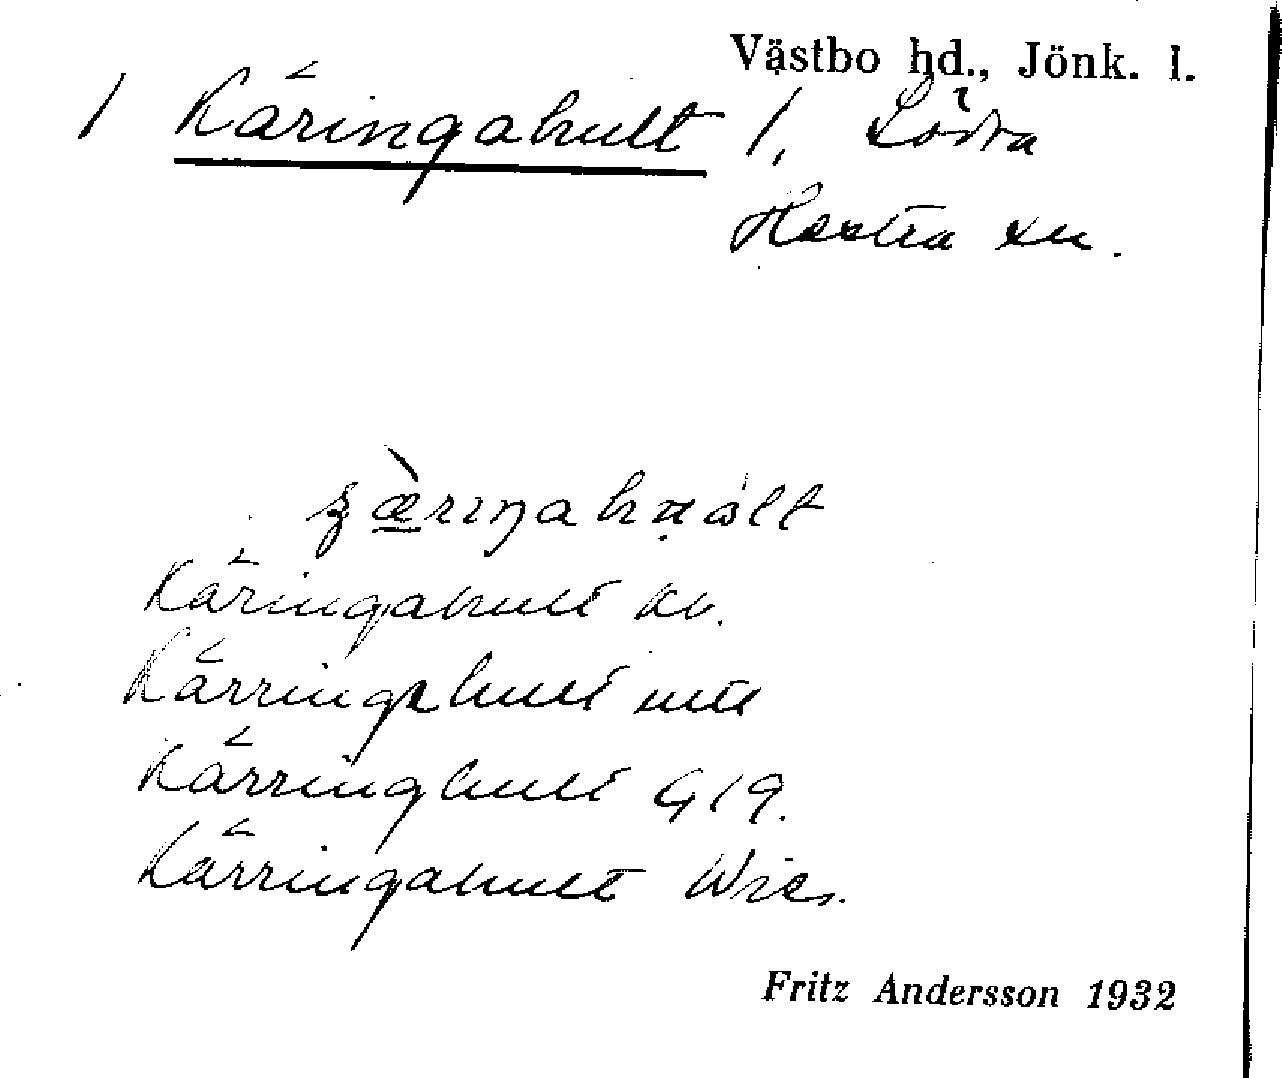 Västbo hd., Jönk. l.
1 Käringahult 1, Södra
Hestra sn.
Käringahult kb.
Kärringahult
Kärringhult G19.
Kärringahult Wies.
Fritz Andersson 1932